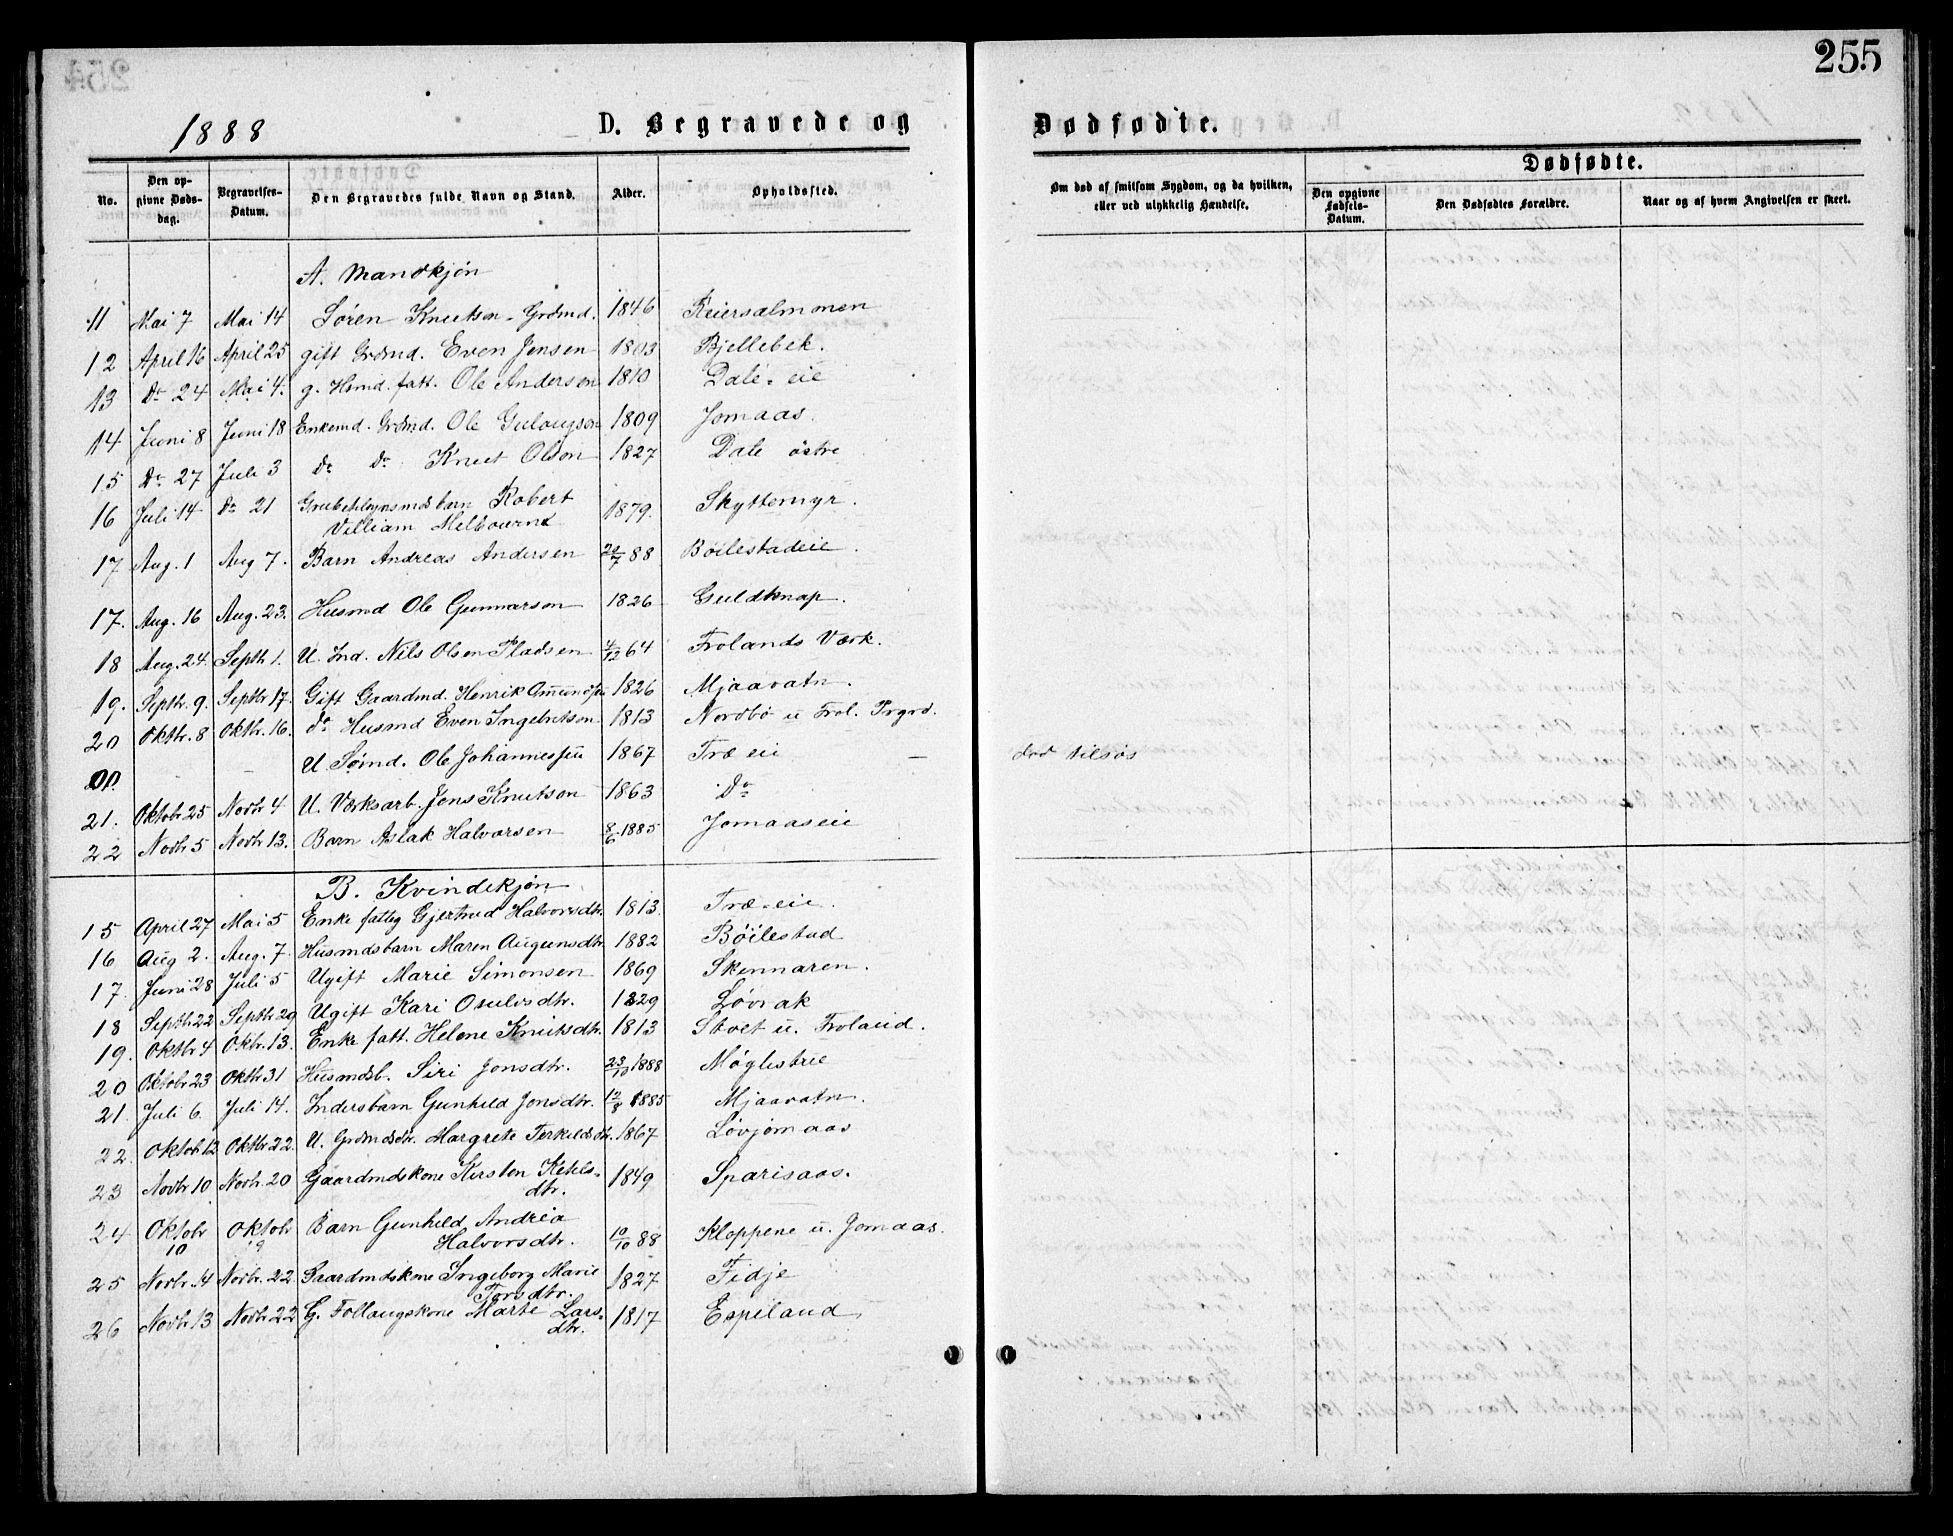 255
1888
D. Begravede og
Dødfødte.
No.
Den opgivne Dødsdag.
Begravelses-Datum.
Den Begravedes fulde Navn og Stand.
Alder.
Opholdssted.
Om død af smitsom Sygdom, og da hvilken, eller ved ulykkelig Hændelse.
Dødfødte.
Den opgivne Fødsels-Datum.
Den Dødfødtes Forældre.
Naar og af hvem Angivelsen er skeet.
A. Mandkjøn
11 Mai 7 Mai 14 Søren Knutson Grdmd. 1846 Reiersølmonen
12 April 16 April 25 gift Grdmd. Even Jensen 1803 Bjellebek.
13 Do 24 Mai 4. g. Hsmd. fatt. Ole Andersen 1810 Dale-eie
14 Juni 8 Juni 18 Enkemd. Grdmd. Ole Gulougson 1809 Jomaas.
15 Do 27 Juli 3 do do Knut Olson 1827 Dale østre
16 Juli 14 do 21 Robert 1879. Skyttemyr.
Villiam Melbourne
17 Aug. 1 Aug 7. Barn Andreas Andersen /7 88 Bøilestadeie.
17. Aug. 16 Aug. 23. Husmd Ole Gunnarson 1826 Guldknap.
18 Aug. 24. Septb 1. U. Ind. Nils Olsen Pladsen 4/12 64 Frolands Værk.
19. Septb. 9. Septbr 17. Gift Gaardmd. Henrik Omundsen 1826 Mjaavatn.
20 Oktbr. 8 Oktbr. 16. do Husmd Even Ingebretson 1813 Nordbø u. Frol. Prgrd.
U. Sømd. Ole Johannessen 1867 Træ eie — død tilsøs
21. Oktobr 25 Novbr 4 U. Værksarb. Jens Knutson 1863 Do
22 Novbr 5 Novbr 13. Barn Aslak Halvorsen 8/6 1885 Jomaaseie
B. Kvindekjøn
15 April 27 Mai 5 Enke fattig Gjertrud Halvorsdtr. 1813. Træ-eie.
16 Aug 2. Aug. 7 Husmdsbarn Maren Augunsdtr. 1882 Bøilestad
17. Juni 28 Juli 5 Ugift Marie Simonsen 1869 Skennaren.
18 Septbr 22 Septbr 29 Ugift Kari Osulvsdtr. 1829 Løvrak
19. Oktbr 4 Oktbr. 13. Enke fatt. Helene Knutsdtr. 1813 u. Froland.
20 Oktobr 23 Oktbr 31 Husmdsb. Siri Jonsdtr. 23/10 1888 Møglestue
21. Juli 6. Juli 14. Indersbarn Gunhild Jonsdtr. 12/8 1885 Mjaavatn.
22. Oktob 12 Oktbr 22. U. Grdmdsdtr. Margrete Terkildsdtr. 1867 Løvjomaas
23 Novbr 10 Novbr. 20 Gaardmdskone Kirsten Ketils- 1849 Sparisaas.
dtr.
24 Oktobr 10 Oktobr 19 Barn Gunhild Andrea
Halvorsdtr. 10/10 88 Kloppene u. Jomaas.
25 Novbr. 4 Novbr. 22 Gaardmdskone Ingeborg Marie 1827 Fidje
Torsdtr.
26 Novbr 13 Novbr 22 G. Follaugskone Marte Lars- 1817 Espeland
dtr.